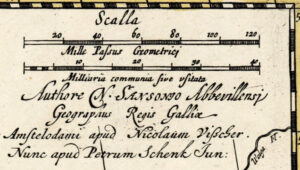 Scalla
20 40 60 80 100
Mille Passus Geometrici
10 20 30 40
Milliaria communia sive usitata
Authore N. SANSONIO Abbevillensi
Geographus Regis Galliæ
Amstelodami apud Nicolaum Visscher.
Nunc apud Petrum Schenk Iun: